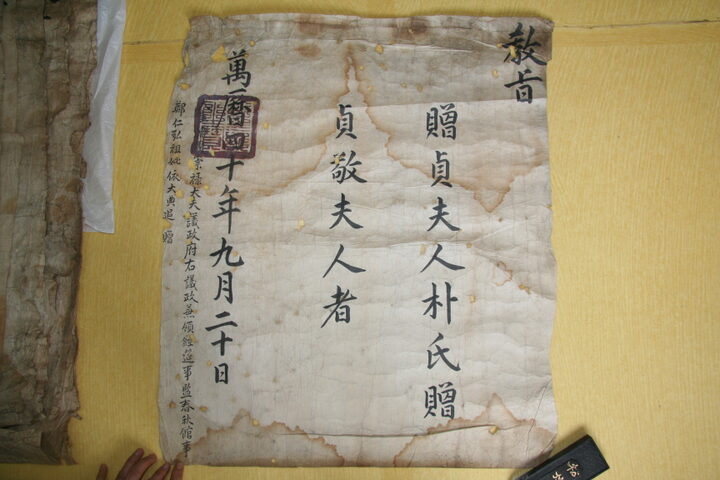 敎旨
贈貞夫人朴氏贈
貞敬夫人者
萬曆四十年九月二十日
崇祿大夫議政府右議政兼領經筵事監春秋館事
鄭仁弘祖妣依大典追 贈